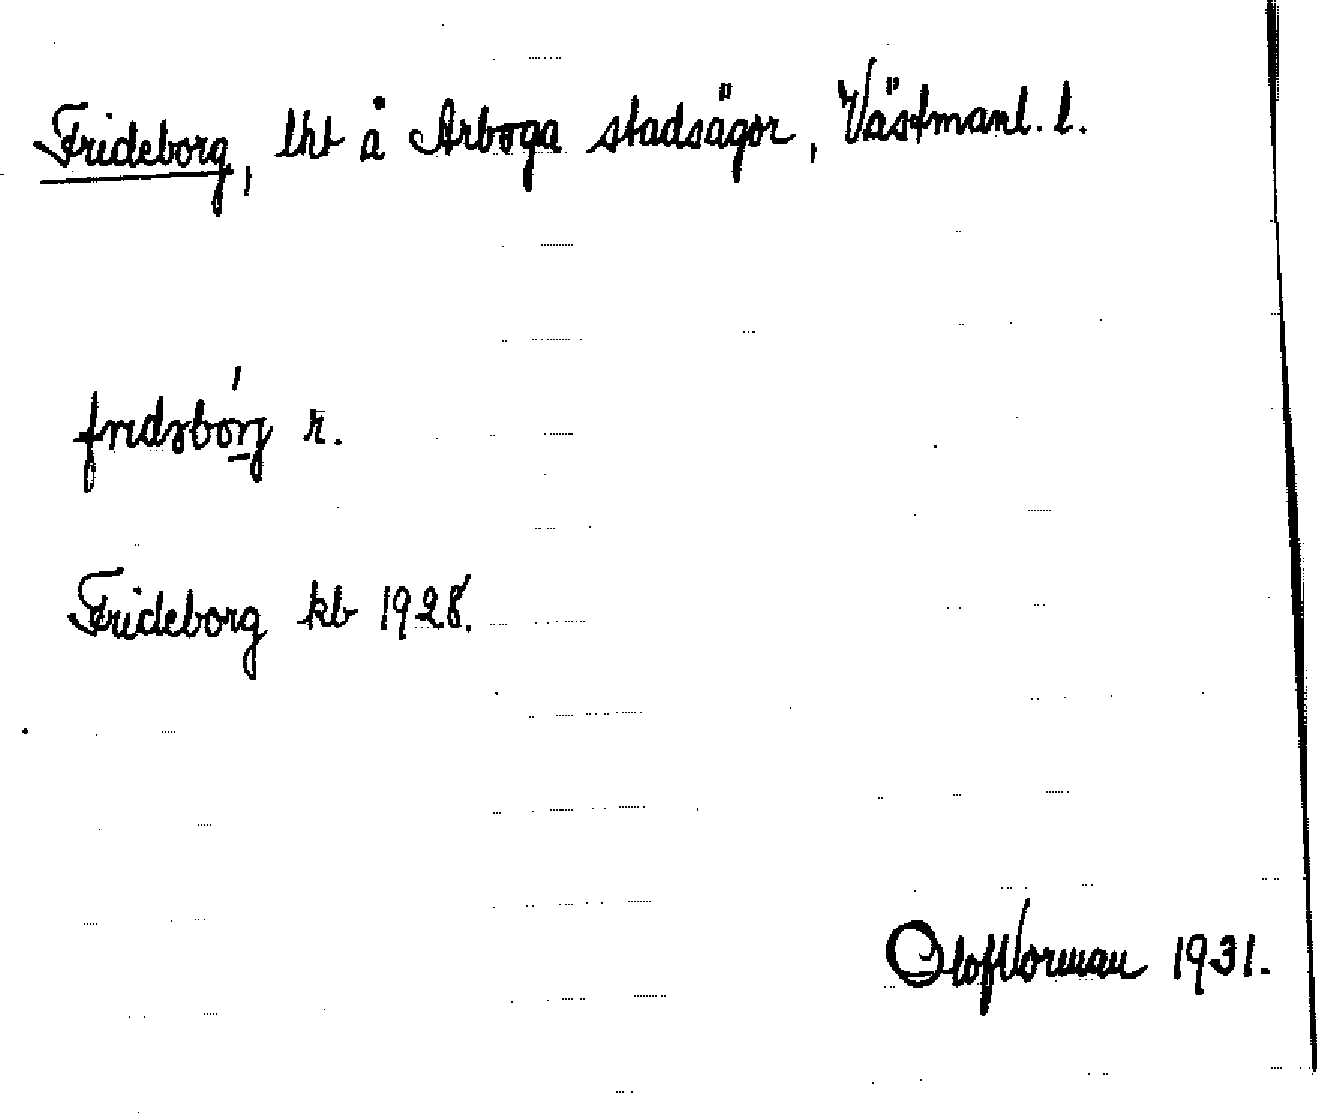 Frideborg, lht å Arboga stadsägor, Västmanl. l.
fridəbórj r.
Frideborg kb 1928.
Olof Vorman 1931.